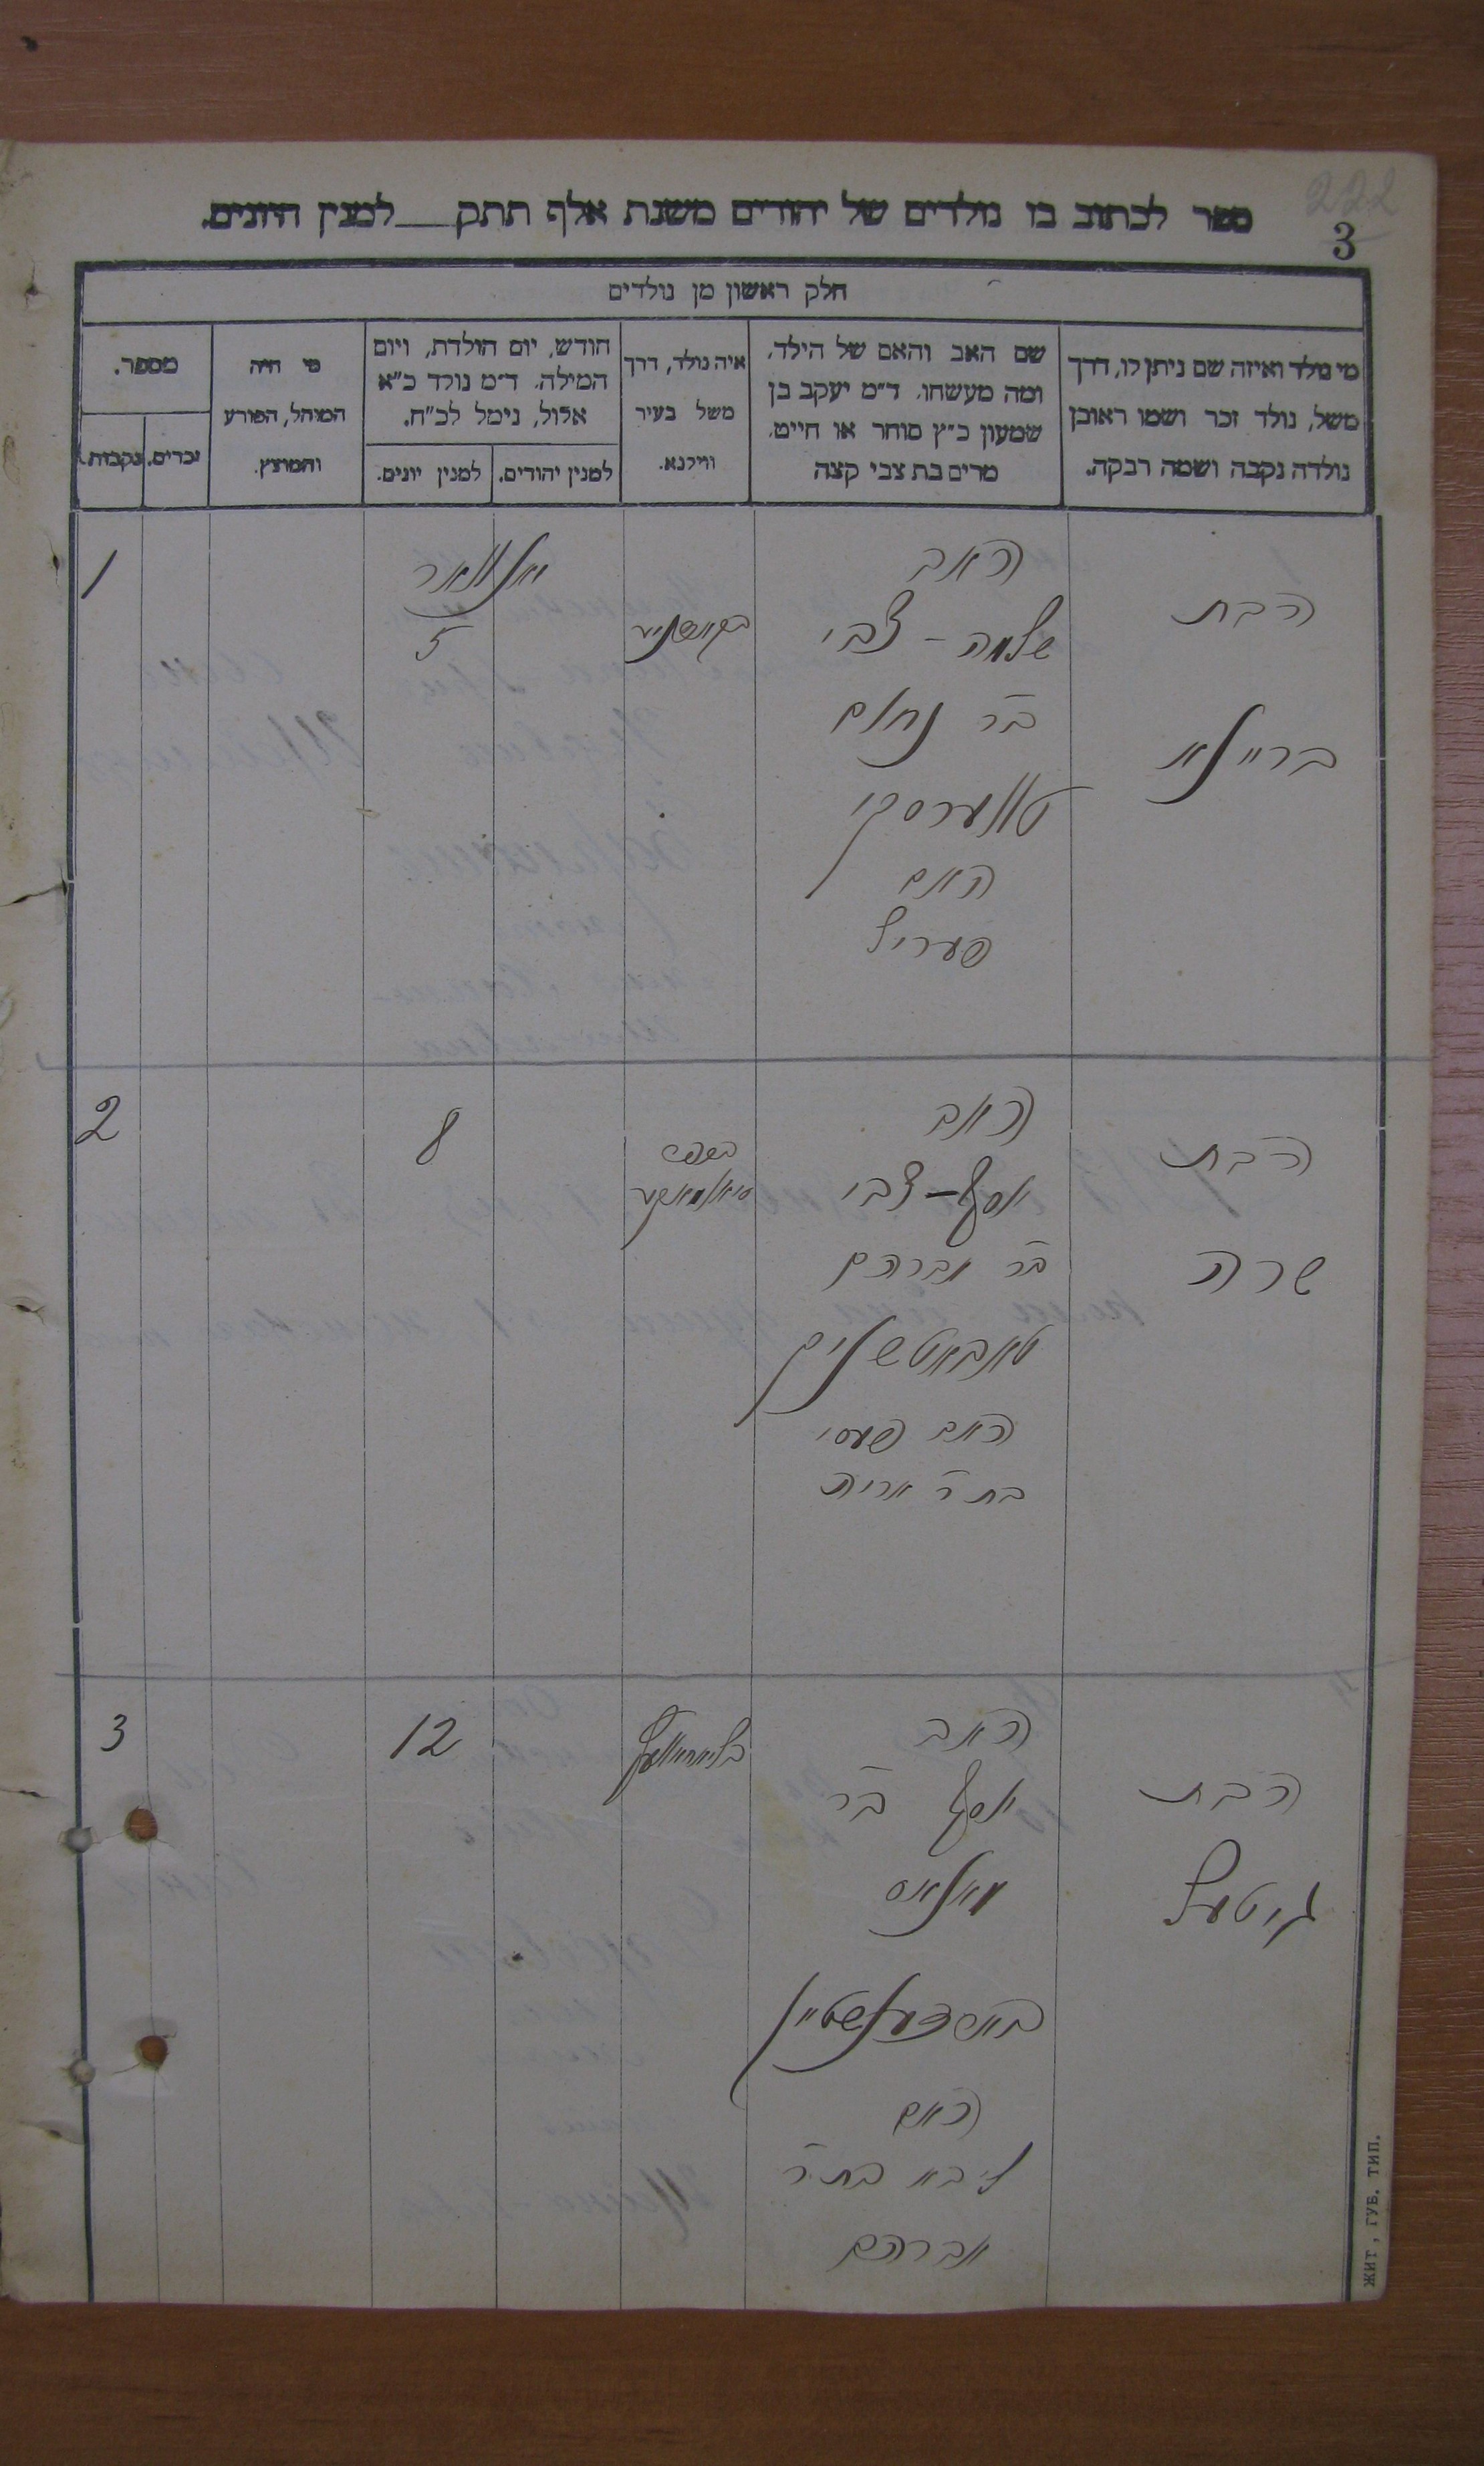 222
3
ספר לכתוב בו נולדים של יהודים משנת אלף תתק___למנין היונים.
חלק ראשון מן נולדים
מי נולד ואיזה שם ניתן לו, דרך
משל, נולד זכר ושמו ראובן
נולדה נקבה ושמה רבקה.
שם האב והאם של הילד,
ומה מעשהו. ד״מ יעקב בן
שמעון כ״ץ סוחר או חייט,
מרים בת צבי קצה
איה נולד, דרך
משל בעיר
ווילנא.
חודש, יום הולדת, ויום
המילה. ד״מ נולד כ״א
אלול, נימל לכ״ח.
למנין יהודים.
למנין יונים.
מי היה
המוהל, הפורע
והמוצץ.
מספר.
זכרים.
נקבות.
הבת
ברײנא
האב
שלמה - צבי
בר נחום
טווערסקי
האם
פערל
יאנוואר
5
1
הבת
שרה
האב
יוסף - צבי
בר אברהם
האם פעסי
בת ר אריה
8
2
הבת
גיטעל
האב
יוסף בר
האם
ליבא בת ר
אברהם
12
3
ЖИТ, ГУБ. ТИП.